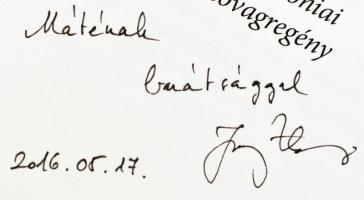 oniai
ovagregény
Máténak
barátsággal
2016.05.17.